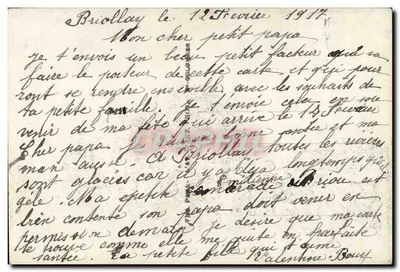 Briollay le 12 Fevrier 1917
Mon cher petit papa
Je t'envois un beau petit facteur qui va
faire le porteur de cette carte et qui pour
ront se rendre ensemble avec les souhaits de
ta petite famille. Je t'envoie cela en sou
venir de ma fête qui arrive le 13 Fevrier
Cher papa bonne santée et ma
man aussi A Briollay toutes les rivieres
sont glacées car il y a déja longtemps qu'il
gèle Ma petite est
bien contente son papa doit venir en
permission demain je desire que ma carte
te trouve comme elle me quitte en parfaite
santée. Ta petite fille qui t'aime
Valentine